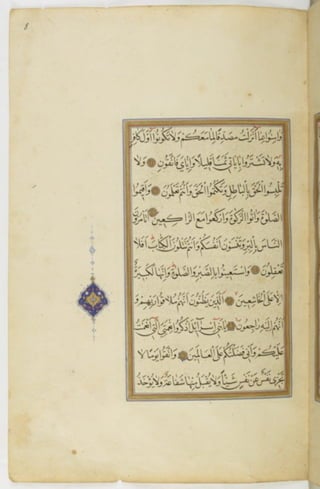 8
وَاٰمِنُوا بِمَا اَنْزَلْتُ مُصَدِّقًا لِمَا مَعَكُمْ وَلَا تَكُونُوا اَوَّلَ كَافِرٍ
بِهِ وَلَا تَشْتَرُوا بِاٰيَاتِي ثَمَنًا قَلِيلًا وَاِيَّايَ فَاتَّقُونِ وَلَا
تَلْبِسُوا الْحَقَّ بِالْبَاطِلِ وَتَكْتُمُوا الْحَقَّ وَاَنْتُمْ تَعْلَمُونَ وَاَقِيمُوا
الصَّلٰوةَ وَاٰتُوا الزَّكٰوةَ وَارْكَعُوا مَعَ الرَّاكِعِينَ اَتَاْمُرُونَ
النَّاسَ بِالْبِرِّ وَتَنْسَوْنَ اَنْفُسَكُمْ وَاَنْتُمْ تَتْلُونَ الْكِتَابَ اَفَلَا
تَعْقِلُونَ وَاسْتَعِينُوا بِالصَّبْرِ وَالصَّلٰوةِ وَاِنَّهَا لَكَبِيرَةٌ
اِلَّا عَلَى الْخَاشِعِينَ اَلَّذِينَ يَظُنُّونَ اَنَّهُمْ مُلَاقُوا رَبِّهِمْ وَ
اَنَّهُمْ اِلَيْهِ رَاجِعُونَ يَا بَنِي اِسْرَائِيلَ اذْكُرُوا نِعْمَتِيَ الَّتِي اَنْعَمْتُ
عَلَيْكُمْ وَاَنِّي فَضَّلْتُكُمْ عَلَى الْعَالَمِينَ وَاتَّقُوا يَوْمًا لَا
تَجْزِي نَفْسٌ عَنْ نَفْسٍ شَيْئًا وَلَا يُقْبَلُ مِنْهَا شَفَاعَةٌ وَلَا يُؤْخَذُ